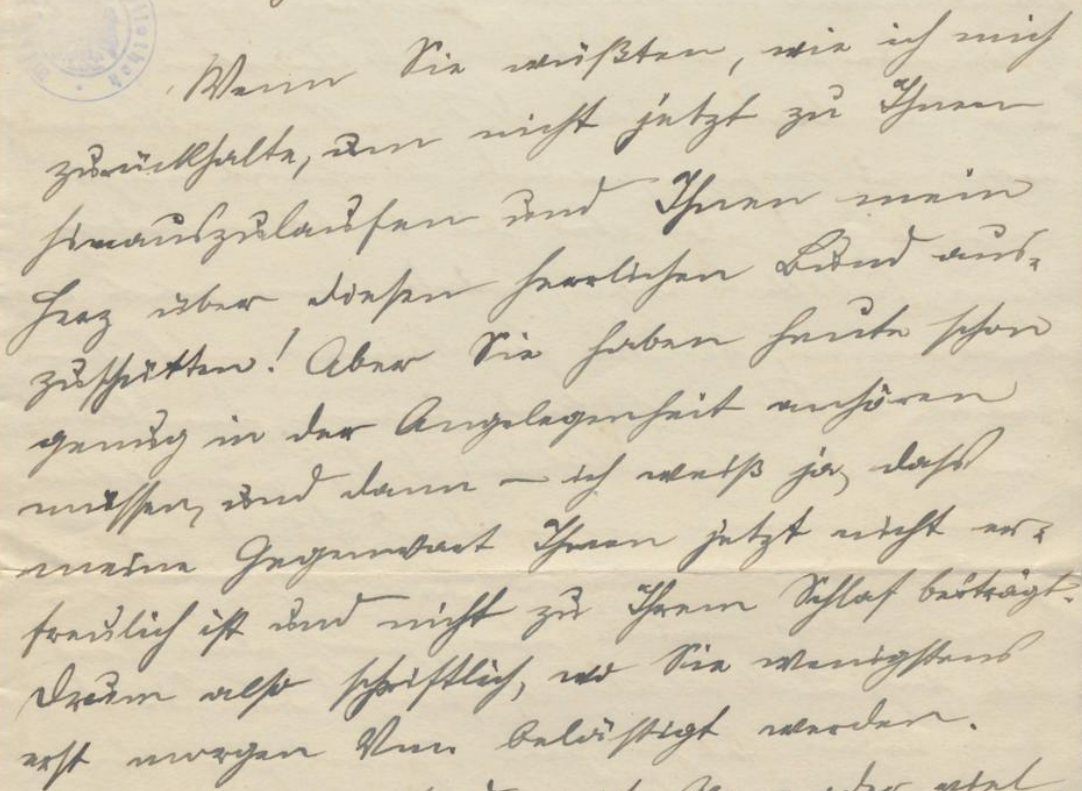 Wenn Sie wüßten, wie ich mich
zurückhalte, um nicht jetzt zu Ihnen
hinauszulaufen und Ihnen mein
Herz über diesen herrlichen Bund aus-
zuschütten! Aber Sie haben heute schon
genug in der Angelegenheit anhören
müssen, und dann – ich weiß ja, dass
meine Gegenwart Ihnen jetzt nicht er-
freulich ist und nicht zu Ihrem Schlaf beiträgt.
Drum also schriftlich, wo Sie wenigstens
erst morgen Vm. belästigt werden.
viel